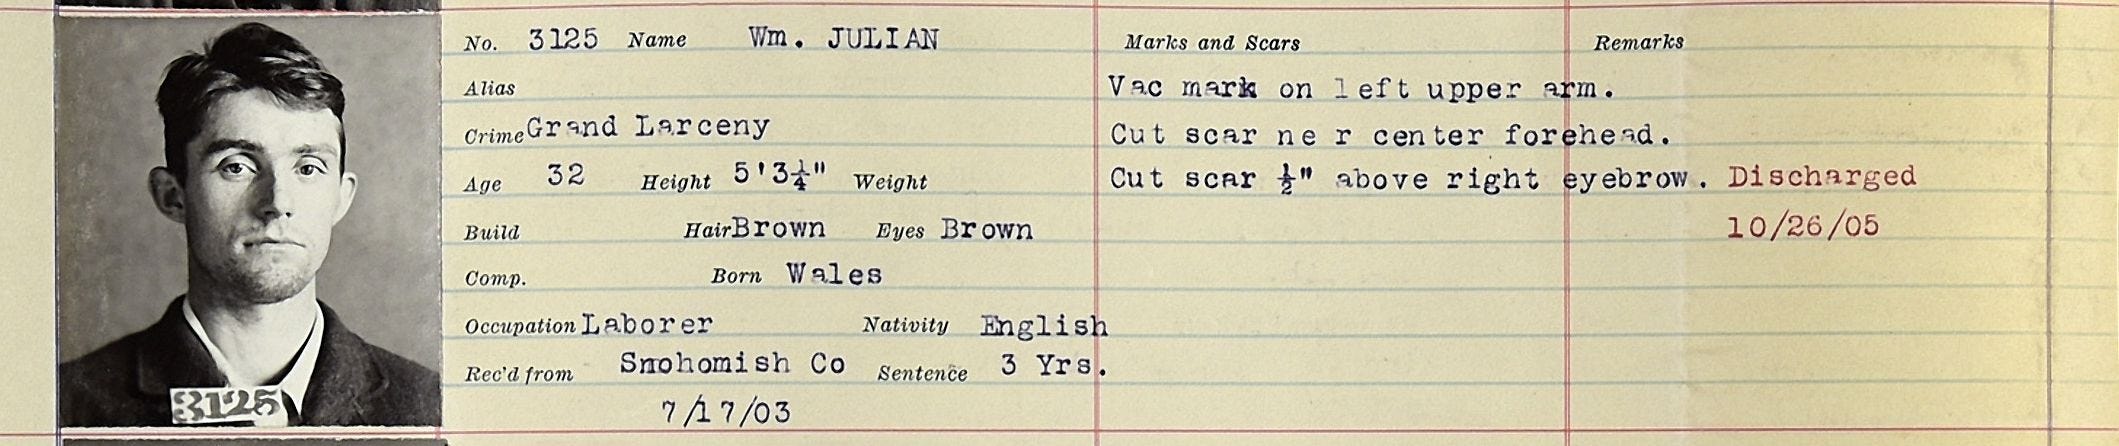 No. 3125 Name Wm. JULIAN
Alias
Crime Grand Larceny
Age 32 Height 5'3¼" Weight
Build Hair Brown Eyes Brown
Comp. Born Wales
Occupation Laborer Nativity English
Rec'd from Snohomish Co Sentence 3 Yrs.
7/17/03
Marks and Scars
Vac mark on left upper arm.
Cut scar ne r center forehead.
Cut scar ½" above right eyebrow.
Remarks
Discharged
10/26/05
3125